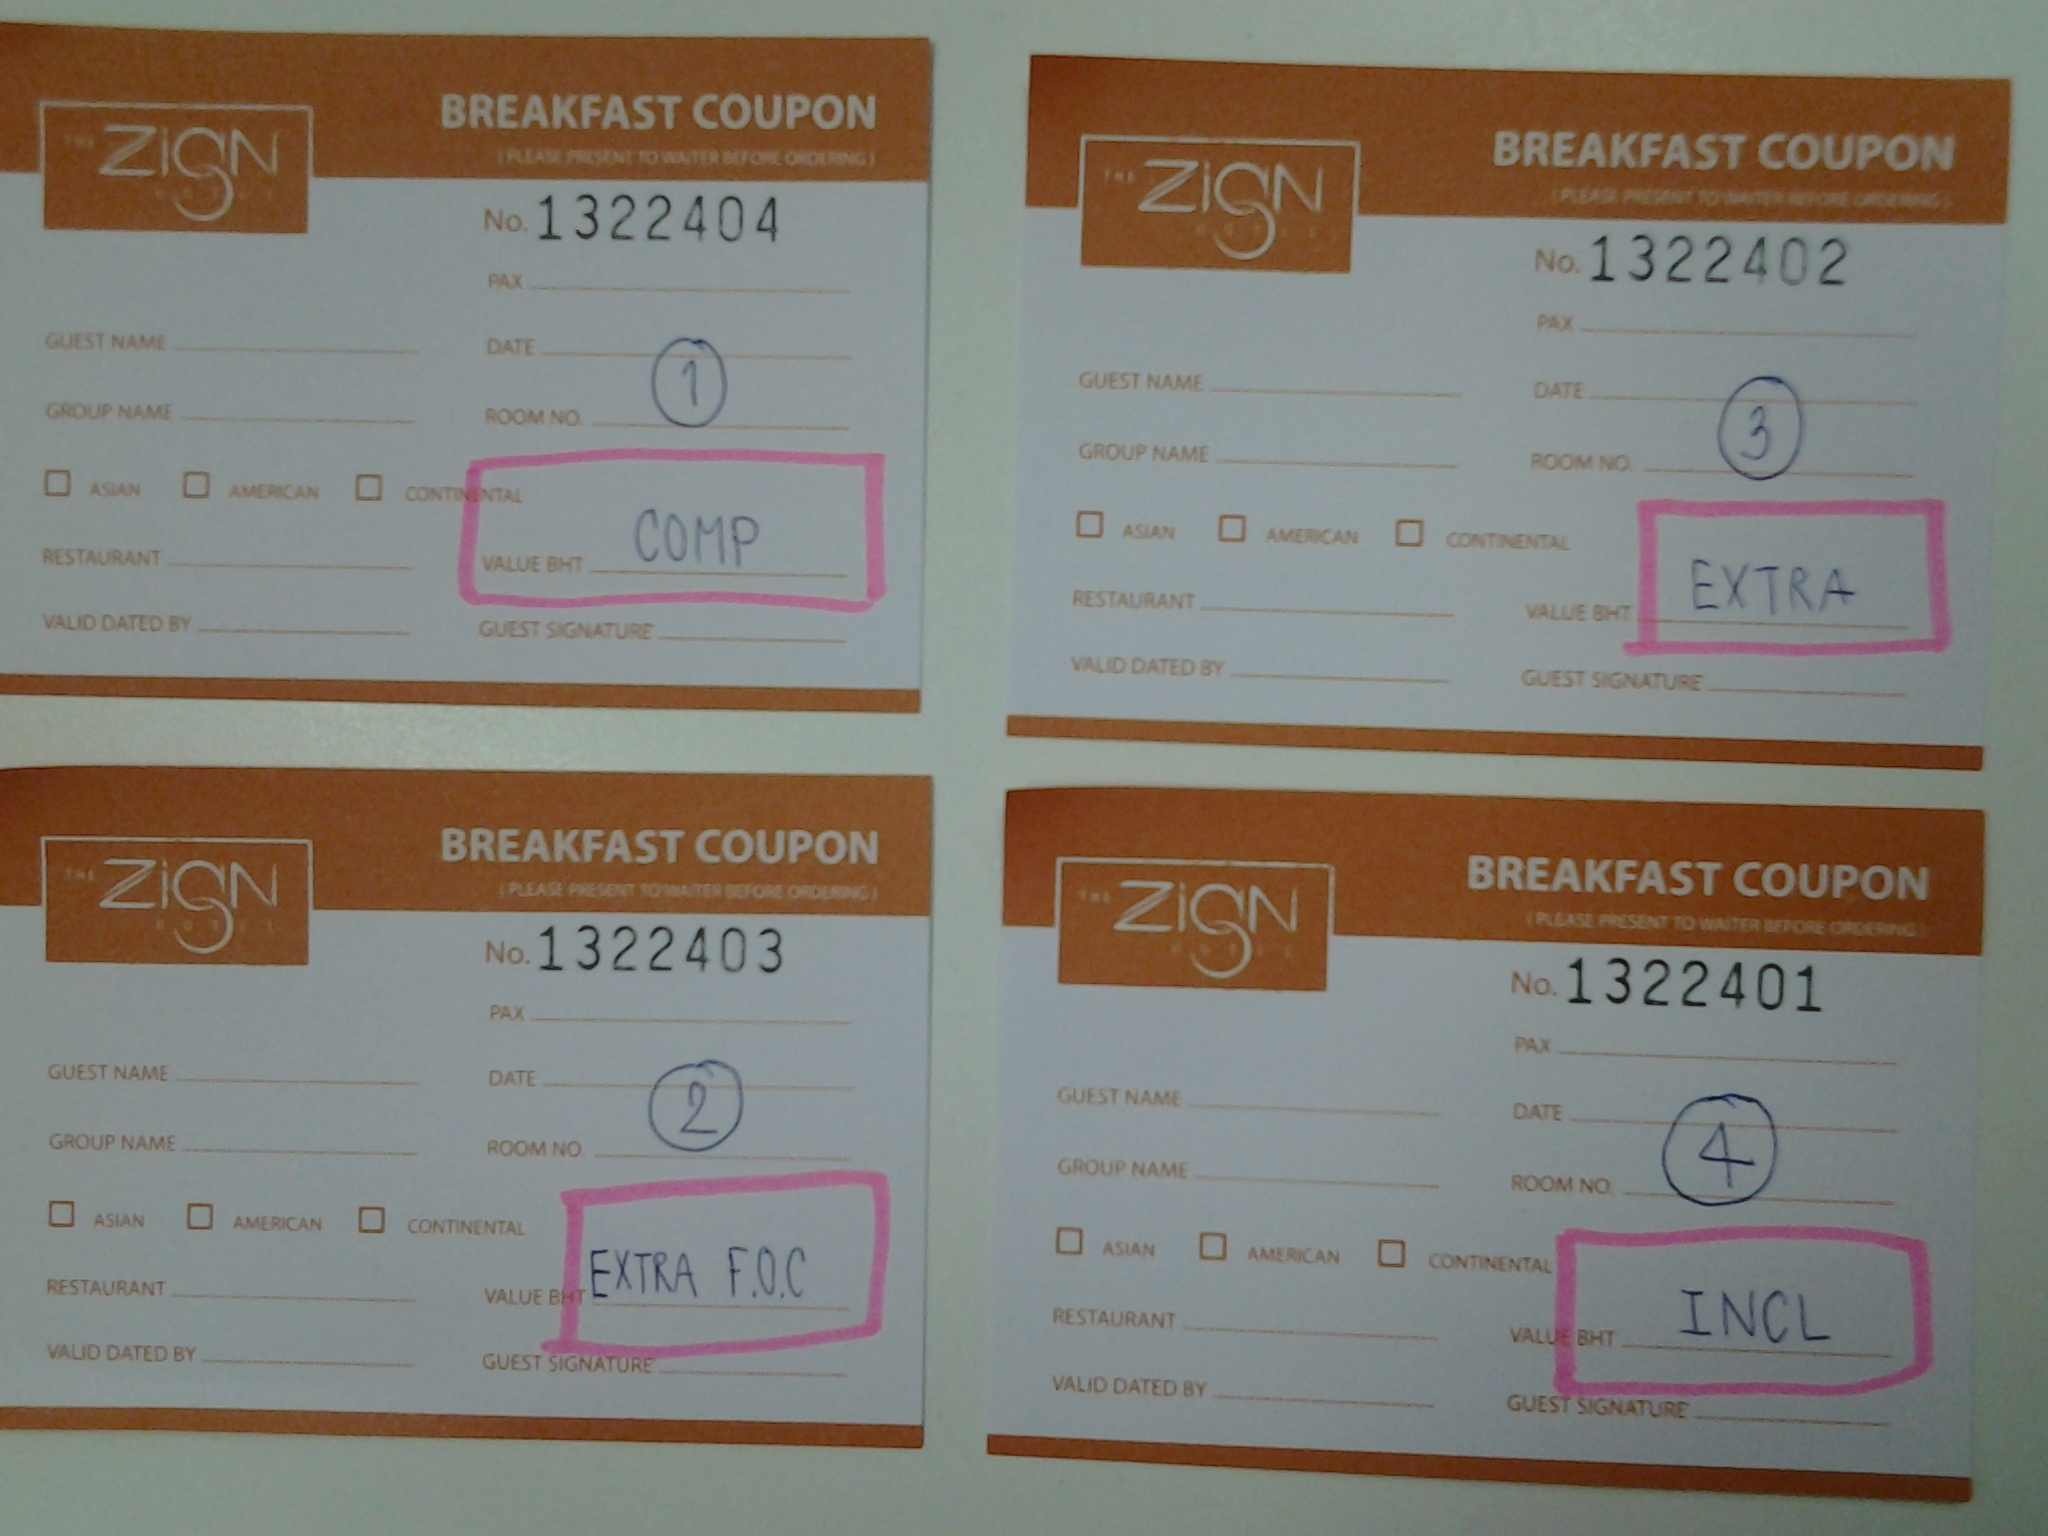 BREAKFAST COUPON
( PLEASE PRESENT TO WAITER BEFORE ORDERING )
THE ZiGN
HOTEL
No. 1322404
PAX
GUEST NAME DATE
1
GROUP NAME ROOM NO.
ASIAN AMERICAN CONTINENTAL
COMP
RESTAURANT VALUE BHT
VALID DATED BY GUEST SIGNATURE
BREAKFAST COUPON
( PLEASE PRESENT TO WAITER BEFORE ORDERING )
THE ZiGN
HOTEL
No. 1322402
PAX
GUEST NAME DATE
3
GROUP NAME ROOM NO.
ASIAN AMERICAN CONTINENTAL
EXTRA
RESTAURANT VALUE BHT
VALID DATED BY GUEST SIGNATURE
BREAKFAST COUPON
( PLEASE PRESENT TO WAITER BEFORE ORDERING )
THE ZiGN
HOTEL
No. 1322403
PAX
GUEST NAME DATE
2
GROUP NAME ROOM NO.
ASIAN AMERICAN CONTINENTAL
EXTRA F.O.C
RESTAURANT VALUE BHT
VALID DATED BY GUEST SIGNATURE
BREAKFAST COUPON
( PLEASE PRESENT TO WAITER BEFORE ORDERING )
THE ZiGN
HOTEL
No. 1322401
PAX
GUEST NAME DATE
4
GROUP NAME ROOM NO.
ASIAN AMERICAN CONTINENTAL
INCL
RESTAURANT VALUE BHT
VALID DATED BY GUEST SIGNATURE